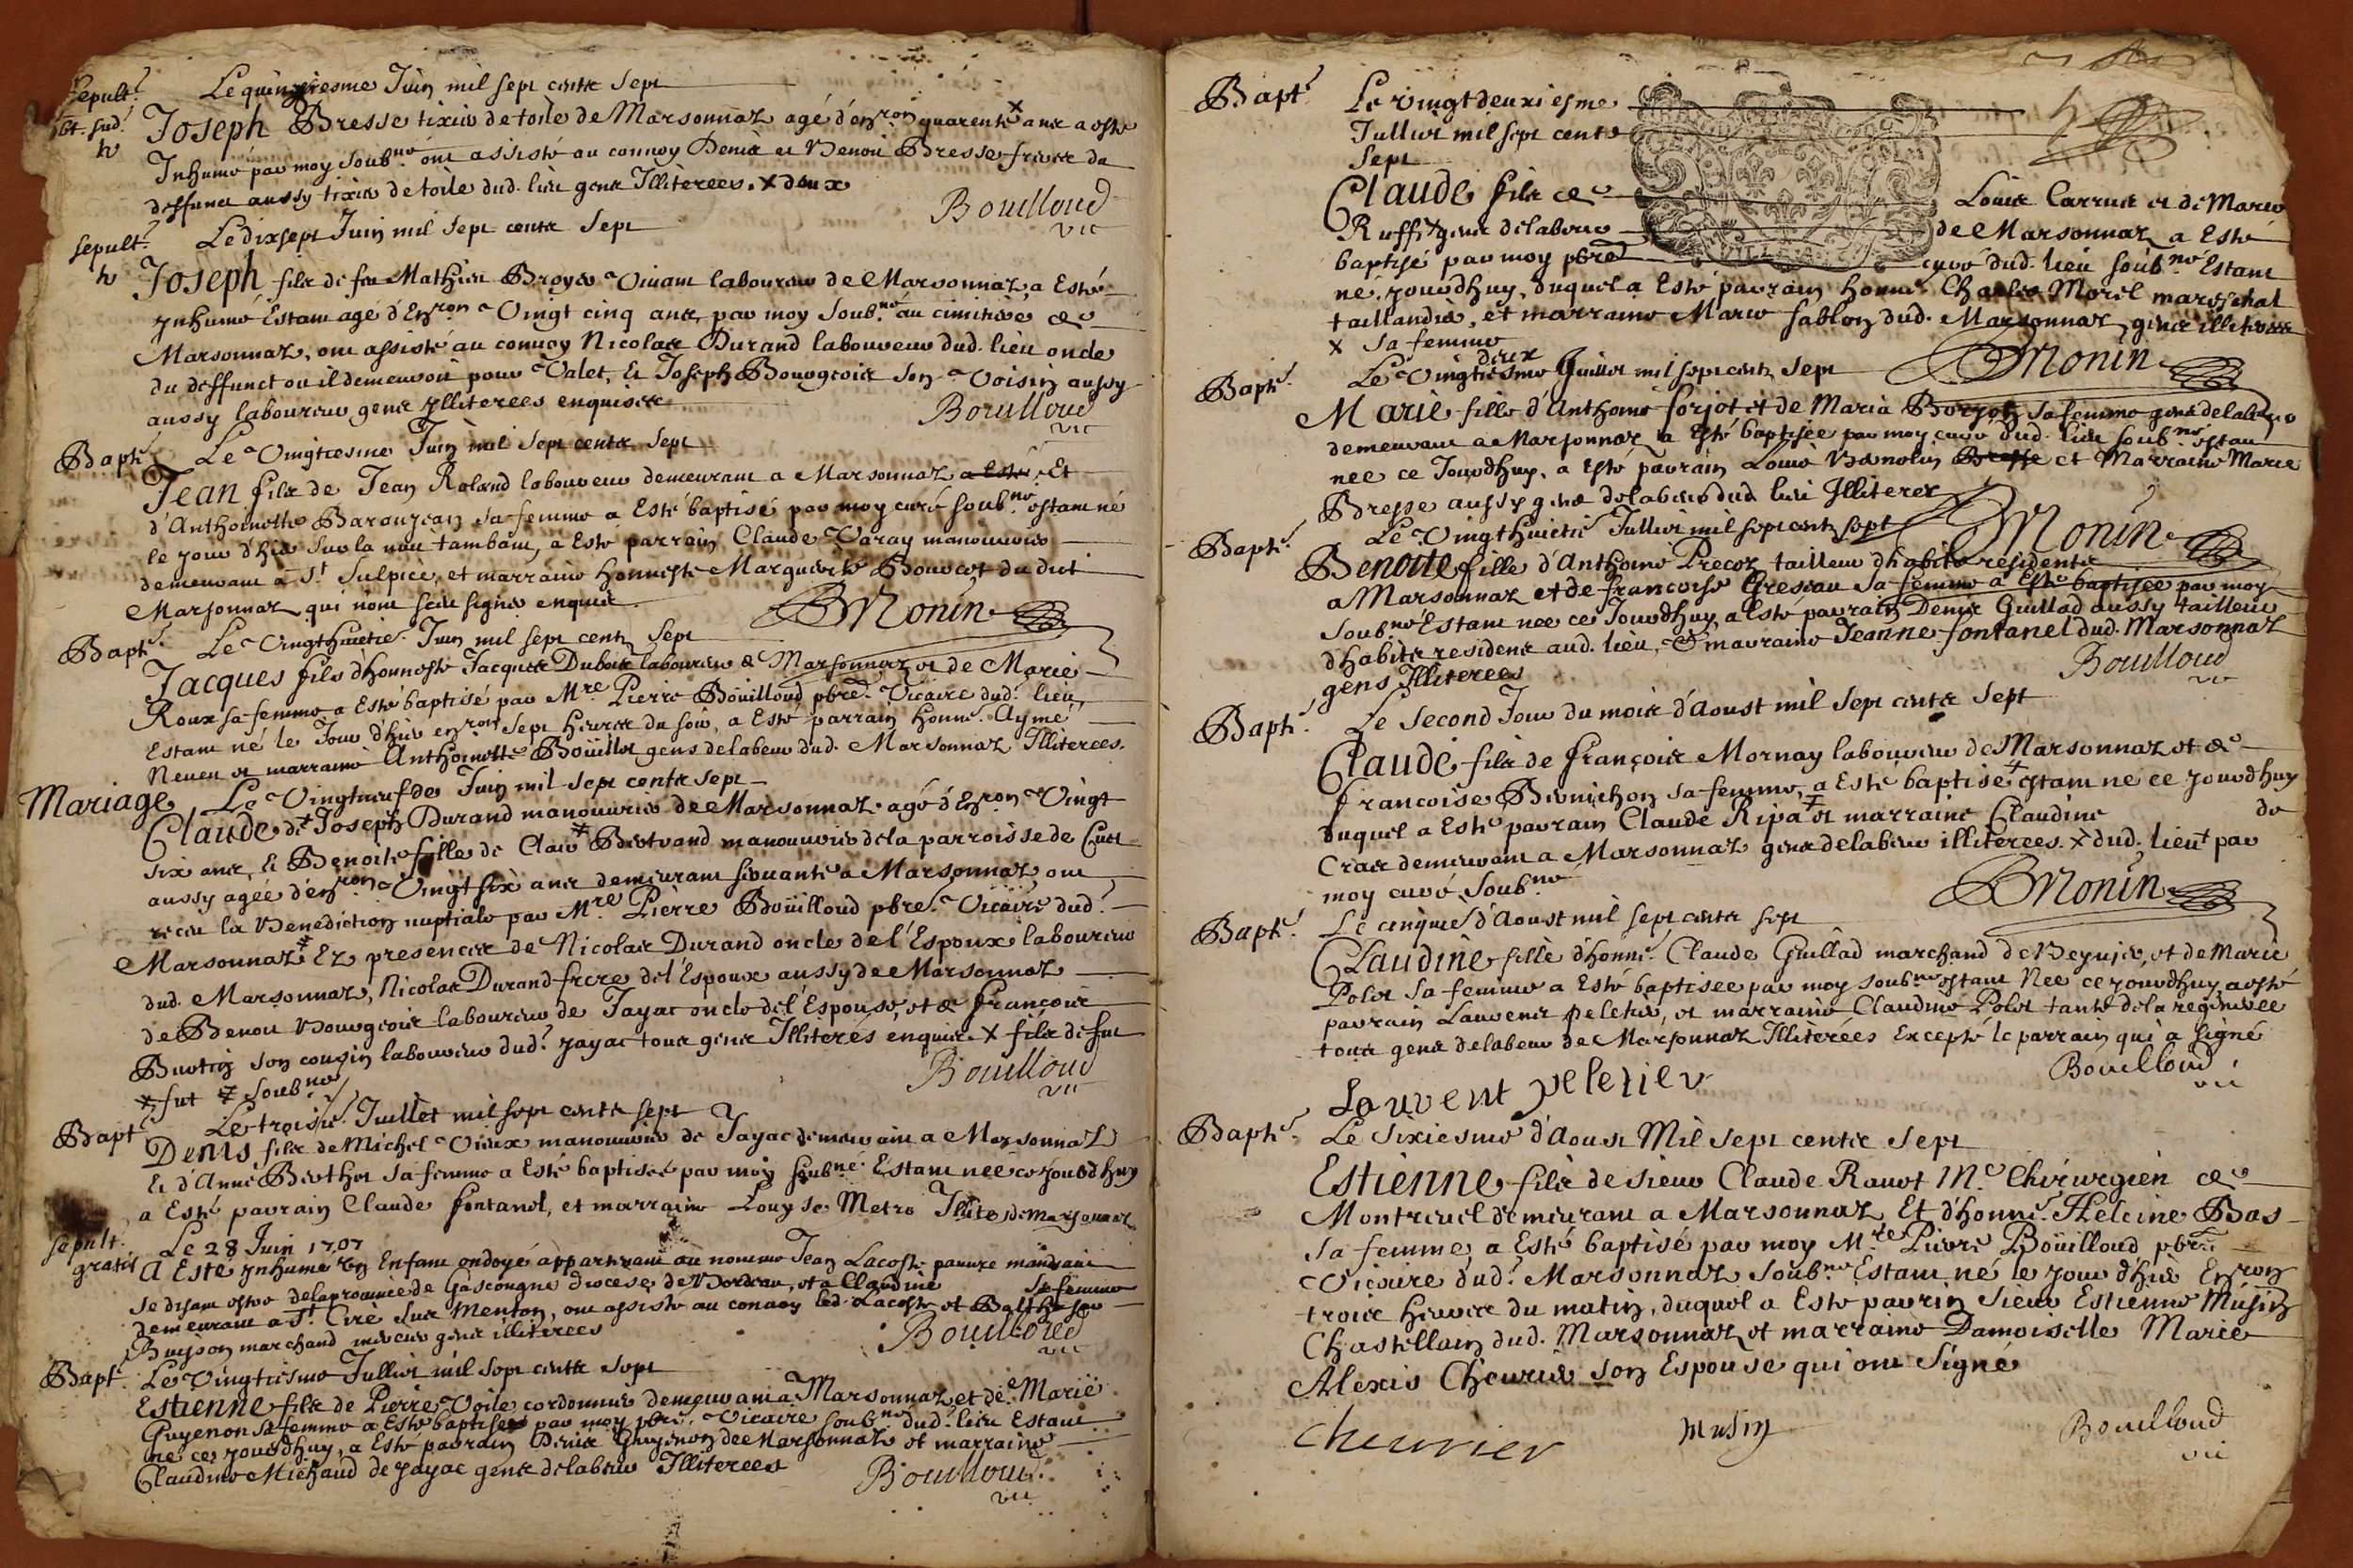 Sepult.
Le quinziesme Juin mil sept cents Sept
Joseph Bresse tixier de toile de Marsonnaz agé d'environ quarente x ans a esté
Inhumé par moy soubné ont assisté au convoy Denis et Benoit Bresse freres du
deffunct aussy tixier de toile dud. lieu gens Illiterees. x deux
Bouilloud
vic
sepult.
Le dixsept Juin mil Sept cents Sept
Joseph fils de feu Mathieu Broyer Vivant laboureur de Marsonnaz a Esté
ynhumé Estant agé d'Environ Vingt cinq ans par moy Soubné au cimitiere de
Marsonnaz, ont assisté au convoy Nicolas Durand laboureur dud. lieu oncle
du deffunct ou il demeuroit pour Valet, Et Joseph Bourgeois son Voisin aussy
aussy laboureur gens ylliterees enquises
Bouilloud
vic
Bapte
Le Vingtiesme Juin mil Sept cents Sept
Jean fils de Jean Roland laboureur demeurant a Marsonnaz a Esté Et
d'Anthoinette Baronjean sa femme a Esté baptisé par moy curé soubné estant né
le jour d'hier sur la nuit tambant, a Esté parrain Claude Varay manouvrier
demeurant a St Sulpice, et marraine honneste Marguerite Bouvcot du dict
Marsonnaz qui n'ont sceu signer enquis
Monin
Bapt.
Le Vingthuictie. Juin mil sept cents Sept
Jacques fils d'honneste Jacques Dubois laboureur de Marsonnaz et de Marie
Roux sa femme a Esté baptisé par Mre Pierre Bouilloud pbre. Vicaire dud. lieu,
Estant né le Jour d'hier environ sept heures du soir, a Esté parrain honne. Aymé
Neveu et marraine Anthoinette Bouillet gens de labeur dud. Marsonnaz Illiterees.
Mariage
Le Vingtneuf de Juin mil sept cents sept
Claude dt Joseph Durand manouvrier de Marsonnaz agé d'Environ Vingt
six ans, Et Benoite fille de Clau≠ Bertrand manouvrier de la parroisse de Cuet
aussy agée d'environ Vingt six ans demeurant servante a Marsonnaz ont
receu la Benediction nuptiale par Mre Pierre Bouilloud pbre. Vicaire dud.
Marsonnaz ≠ En presences de Nicolas Durand oncle de l'Espoux laboureur
dud. Marsonnaz, Nicolas Durand frere de l'Espoux aussy de Marsonnaz
de Benoit Bourgeois laboureur de Jayac oncle de l'Espouse, et de François
Buotin son cousin laboureur dud. jayac tous gens Illiterés enquis x fils de fut
≠ fut ≠ Soubné
Bouilloud
vic
Bapt
Le troisie. Juillet mil sept cents sept
Denis fils de Michel Vieux manouvrier de Jayac demeurant a Marsonnaz
Et d'Anne Berthet sa femme a Esté baptisée par moy soubné Estant neé ce jourdhuy
a Esté parrain Claude fontanel, et marraine Louyse Metra Illite. de marsonnaz
Sepult.
gratis
Le 28 Juin 1707
A Esté ynhumé un Enfant ondoyé appartenant au nommé Jean Lacoste pauvre mandiant
se disant estre de la province de Gascongne diocese de Bordeau, et a Claudine sa femme
demeurant a St Cire sur Menton, ont assisté au convoy led. Lacoste et Balthesar
Buisson marchand gens illiterees
Bouilloud
vic
Bapt
Le Vingtiesme Jullier mil sept cents sept
Estienne fils de Pierre Voile cordonnier demeurant a Marsonnaz et de Marie
Guyenon sa femme a Esté baptisé par moy pbre. Vicaire soubné dud. lieu Estant
né ce jourdhuy, a Esté parrain Denis Guyenon de Marsonnaz et marraine
Claudine Michaud de jayac gens de labeur Illiterees
Bouilloud
vic
Bapte
Le vingtdeuxiesme
Jullier mil sept cents
sept
Claude fils de Louis Carruet et de Marie
Ruffi x gens de labeur de Marsonnaz a Esté
baptisé par moy pbre curé dud. lieu soubné Estant
né jourdhuy, duquel a Esté parrain honne. Charles Morel mareschal
taillandier, et marraine Marie sablon dud. Marsonnaz, gens illiterees
x sa femme
Monin
Bapte.
Le Vingtiesme deux Juillet mil sept cents sept
Marie fille d'Anthoine forjot et de Maria Borjon sa femme gens de labeur
demeurant a Marsonnaz a Esté baptisée par moy curé dud. lieu soubné estant
nee ce Jourdhuy, a Esté parrain Louis Vernolin Bresse et Marraine Marie
Bresse aussy gens de labeur dud. lieu Illiterez
Monin
Bapte.
Le Vingthuictie Jullier mil sept cents sept
Benoite fille d'Anthoine Precoz tailleur dhabits residents
a Marsonnaz et de francoise Greseau sa femme a Esté baptisée par moy
soubné Estant nee ce Jourdhuy, a Esté parrain Denis Guillad aussy tailleur
dhabits resident aud. lieu, et marraine Jeanne fontanel dud. Marsonnaz
gens Illiterees
Bouilloud
vic
Bapte.
Le second Jour du mois d'Aoust mil Sept cents Sept
Claude fils de François Mornay laboureur de Marsonnaz et de
francoise Bernichon sa femme, a Esté baptisé + estant né ce jourdhuy
duquel a Esté parrain Claude Ripa ≠ et marraine Claudine de
Cras demeurant a Marsonnaz gens de labeur illiterees. ≠ dud. lieu + par
moy curé soubné
Monin
Bapte.
Le cinquie d'Aoust mil sept cents sept
Claudine fille d'honne. Claude Guillad marchand de Beynier, et de Marie
Polet sa femme a Esté baptisee par moy soubné estant Nee ce jourdhuy a esté
parrain Laurent peletier, et marraine Claudine Polet tante de la regeneree
tous gens de labeur de Marsonnaz Illiterées Excepté le parrain qui a signé
Bouilloud
vic
Lauvent peletiev
Bapte.
Le Sixiesme d'Aoust Mil Sept cents Sept
Estienne fils de sieur Claude Ravot Me Chirurgien de
Montrevel demeurant a Marsonnaz Et d'honne. Heleine Bas
sa femme, a Esté baptisé par moy Mre Pierre Bouilloud pbre
Vicaire dud. Marsonnaz soubné Estant né le jour d'hier Environ
trois heures du matin, duquel a Esté parrin sieur Estienne Musin
Chastellain dud. Marsonnaz et marraine Damoiselle Marie
Alexis Cheurier son Espouse qui ont signé
Cheurier
Musin
Bouilloud
vic